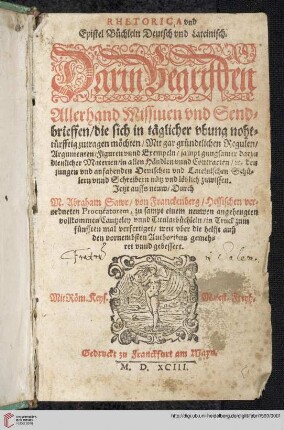 RHETORICA vnd
Epistel Büchlein Deutsch vnd Lateinisch.
Darin Begriffen
Allerhand Missiuen vnd Send-
brieffen/die sich in täglicher vbung noht-
türfftig zutragen möchten. Mit gar gründlichen Regulen/
Argumenten/Figuren vnnd Exempeln/sampt gnugsamer darzu
dienlicher Materien in allen Händlen vnnd Contracten/
jungen vnd anfahenden Deutschen vnd Lateinischen Schü-
lern vnnd Schreibern nütz vnd löblich zuwissen.
Jetzt auffs neuw/Durch
M. Abraham Sawr/von Franckenberg/Hessischen ver-
ordneten Procuratorem/zu sampt einem neuwen angehengten
vollkommen Cantzeley vnnd Titularbüchlein im Truck zum
fünfften mal verfertiget/weit vber die helffte auß
den vornembsten Authoribus gemeh-
ret vnnd gebessert.
Mit Röm. Keys. Maiest. Freyh.
Gedruckt zu Franckfurt am Mayn.
M. D. XCIII.